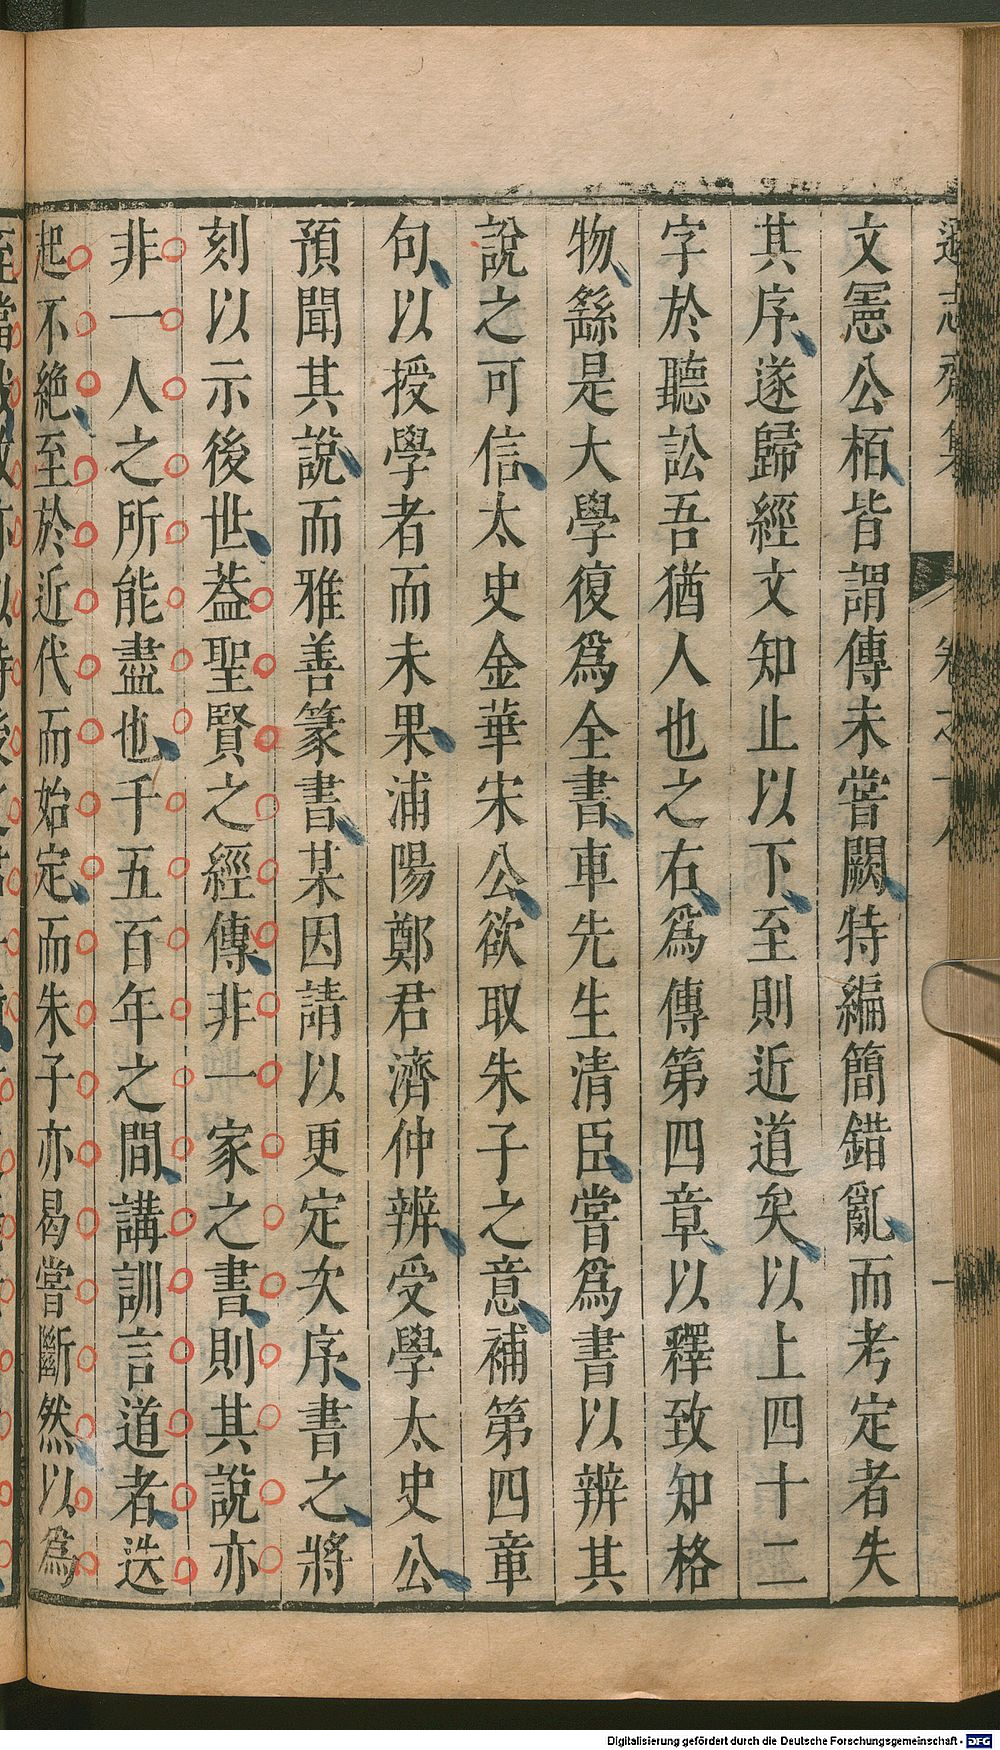 文憲公栢皆謂傳未嘗闕特編簡錯亂而考定者失
其序遂歸經文知止以下至則近道矣以上四十二
字於聽訟吾猶人也之右爲傳第四章以釋致知格
物繇是大學復爲全書車先生清臣嘗爲書以辨其
說之可信太史金華宋公欲取朱子之意補第四章
句以授學者而未果浦陽鄭君濟仲辨受學太史公
預聞其說而雅善篆書某因請以更定次序書之將
刻以示後世葢聖賢之經傳非一家之書則其說亦
非一人之所能盡也千五百年之間講訓言道者迭
起不絶至於近代而始定而朱子亦曷嘗斷然以爲
Digitalisierung gefördert durch die Deutsche Forschungsgemeinschaft - DFG